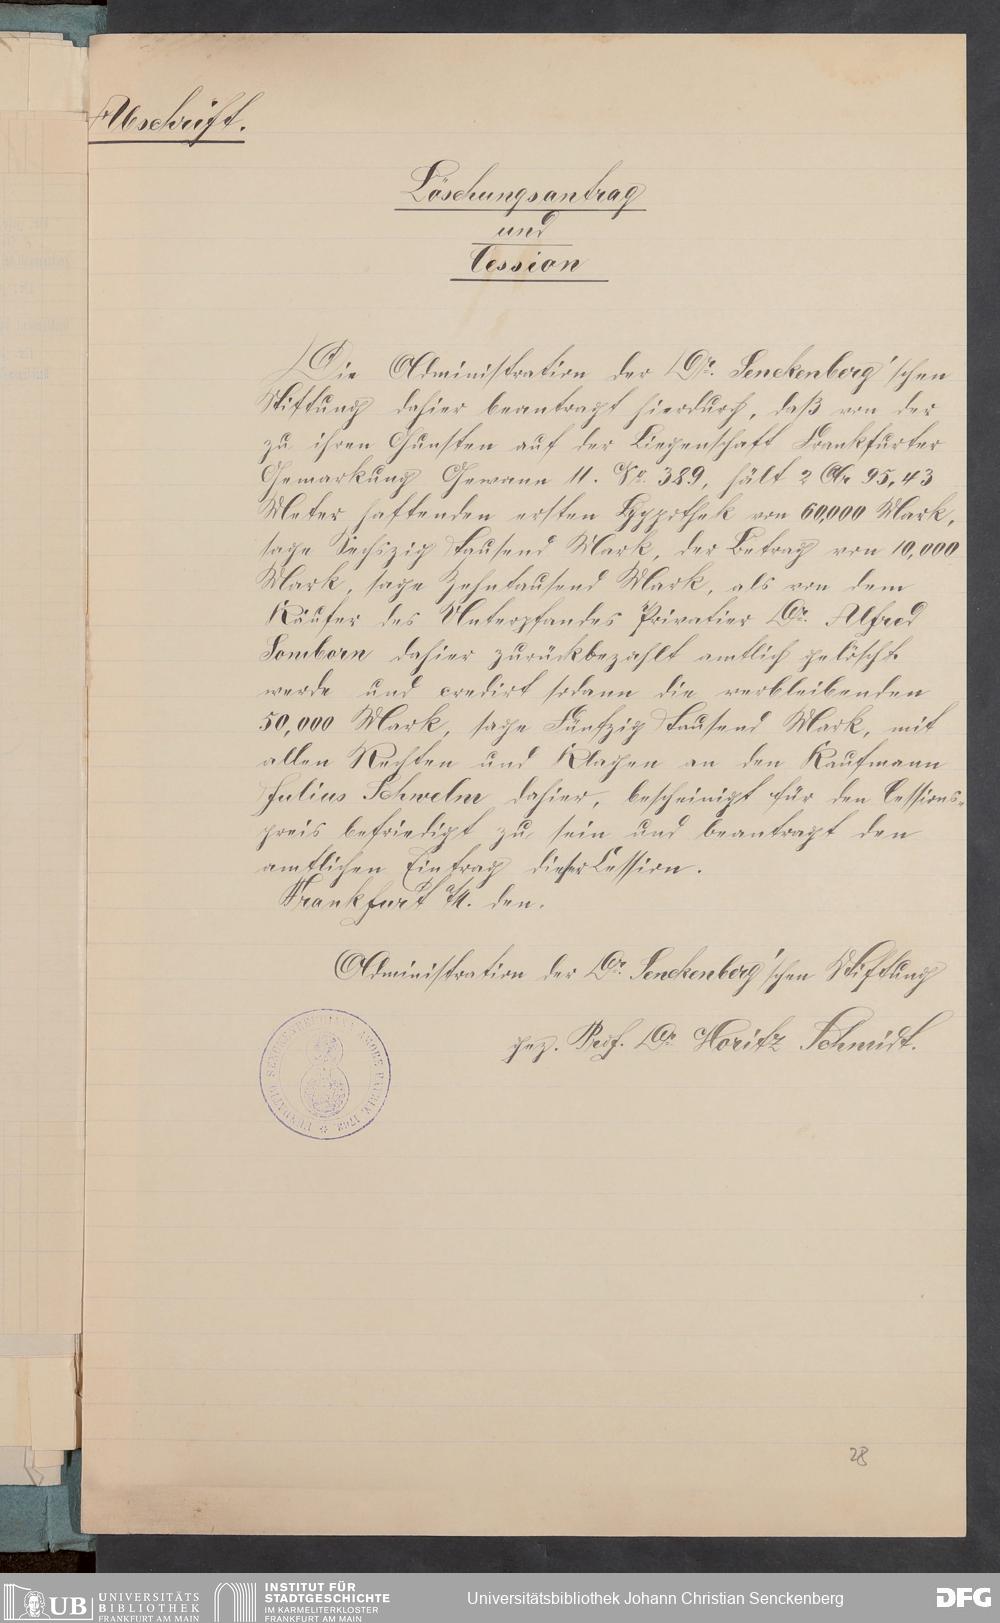 Abschrift.
Löschungsantrag
und
Cession
Die Administration der Dr. Senckenberg'schen
Stiftung dahier beantragt hierdurch, daß von der
zu ihren Gunsten auf der Liegenschaft Frankfurter
Gemarkung Gewann 11. No. 389, hält 2 Ar 95,43
Meter haftenden ersten Hypothek von 60,000 Mark,
sage Sechszig Tausend Mark, der Betrag von 10,000
Mark, sage Zehntausend Mark, als von dem
Käufer des Unterpfandes Privatier Dr. Alfred
Somborn dahier zurückbezahlt amtlich gelöscht
werde und credirt sodann die verbleibenden
50,000 Mark, sage Fünfzig Tausend Mark, mit
allen Rechten und Klagen an den Kaufmann
Julius Schwelm dahier, bescheinigt für den Cessions-
preis befriedigt zu sein und beantragt den
amtlichen Eintrag dieser Cession.
Frankfurt a/M. den.
Administration der Dr. Senckenberg'schen Stiftung
gez. Prof. Dr. Moritz Schmidt.
FUNDATIO SENCKENBERGIANA AMORE PATRIAE. 1763.
28
UB UNIVERSITÄTS
BIBLIOTHEK
FRANKFURT AM MAIN
INSTITUT FÜR
STADTGESCHICHTE
IM KARMELITERKLOSTER
FRANKFURT AM MAIN
Universitätsbibliothek Johann Christian Senckenberg
DFG